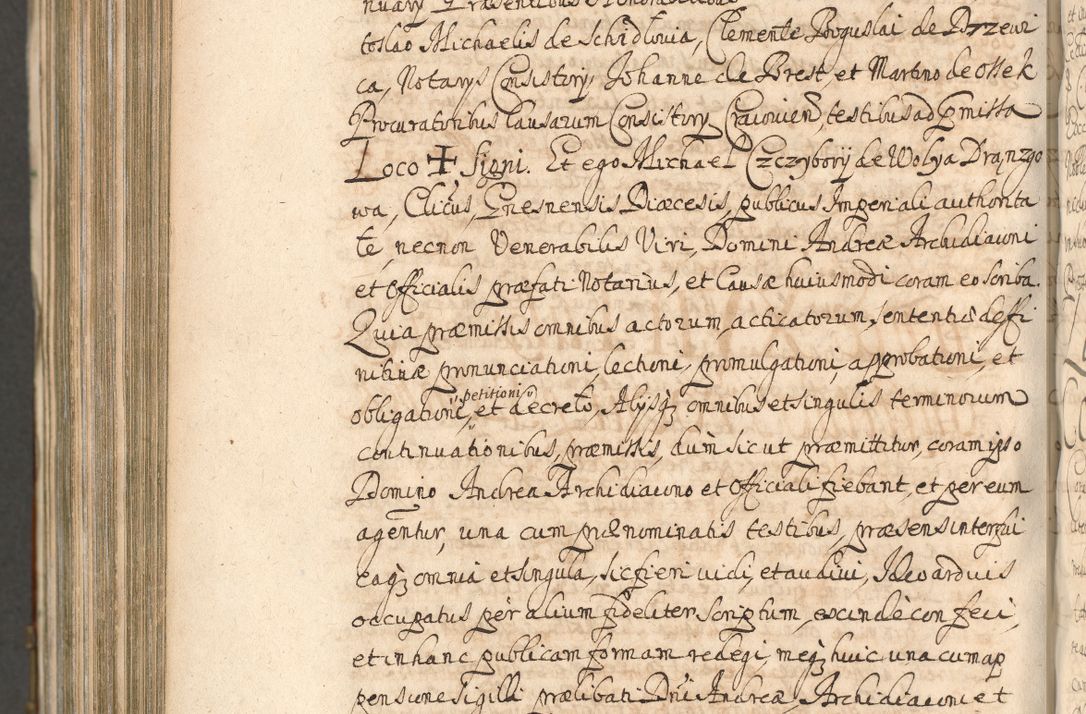 nuarij Præsentibus Honorabilibus
toslao Michaelis de Schidlovia, Clemente Boguslai de Brzewi
ca, Notarijs Consistorij, Johanne de Brest et Martino de Ossek
Procuratoribus Causarum Consistorij Cracovien, testibus ad præmissa
Loco ✝ Signi. Et ego Michael Czczyborij de Wolya Drązgo
wa, Clicus, Gnesnensis Diæcesis, publicus Imperiali authorita
te, necnon Venerabilis Viri, Domini Andreæ Archidiaconi
et Officialis præfati Notarius, et Causæ huiusmodi coram eo scriba.
Quia præmissis omnibus actorum, acticatorum, sententiæ deffi
nitivæ pronunciationi, lectioni, promulgationi, approbationi, et
obligationi, petitioni et decreto, Alijsq; omnibus et singulis terminorum
continuationibus, præmissis, dum sicut præmittitur, coram ipso
Domino Andrea Archidiacono et Officiali fiebant, et per eum
agentur, una cum prænominatis testibus, præsens interfui
eaq; omnia et singula, sic fieri vidi, et audivi, Ideo arduis
occupatus per alium fideliter scriptum, exinde confeci,
et in hanc publicam formam redegi, meq; huic una cum ap
pensione Sigilli prælibati Dni Andreæ, Archidiaconi et